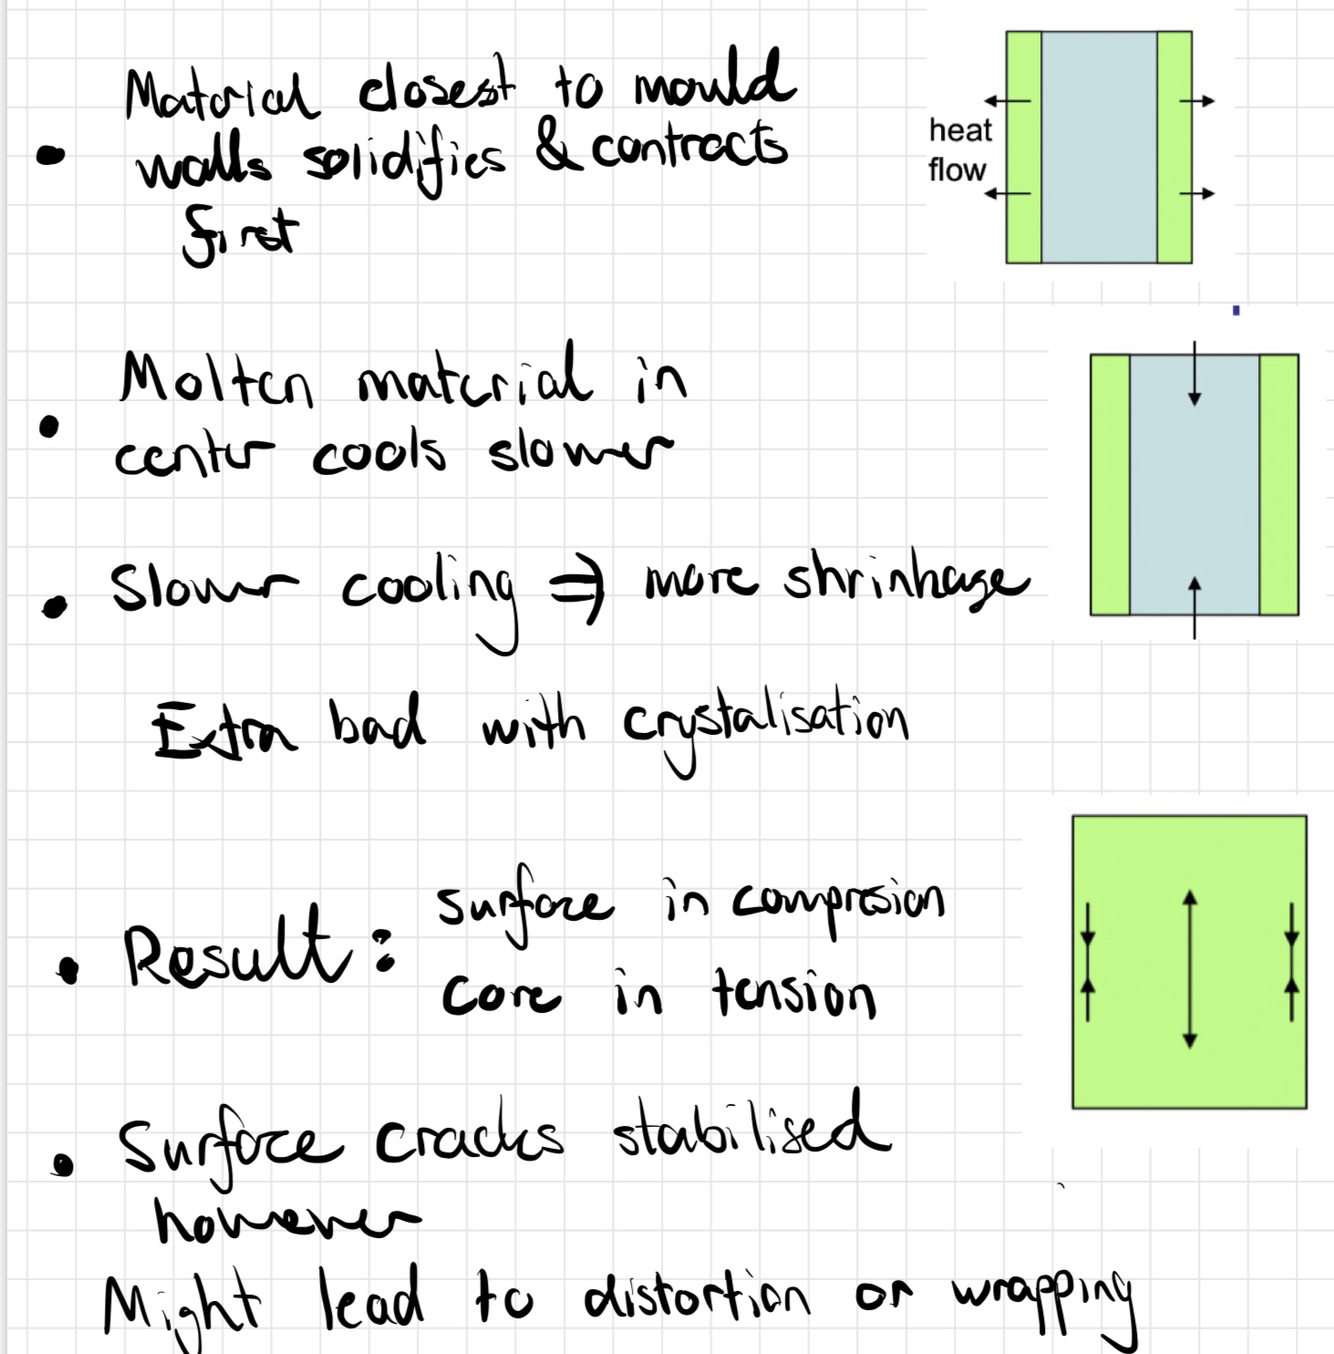 Material closest to mould
• walls solidifies & contracts
first
heat
flow
Molten material in
• center cools slower
• Slower cooling ⇒ more shrinkage
Extra bad with crystalisation
• Result: surface in compresion
core in tension
• Surface cracks stabilised
however
Might lead to distortion or wrapping